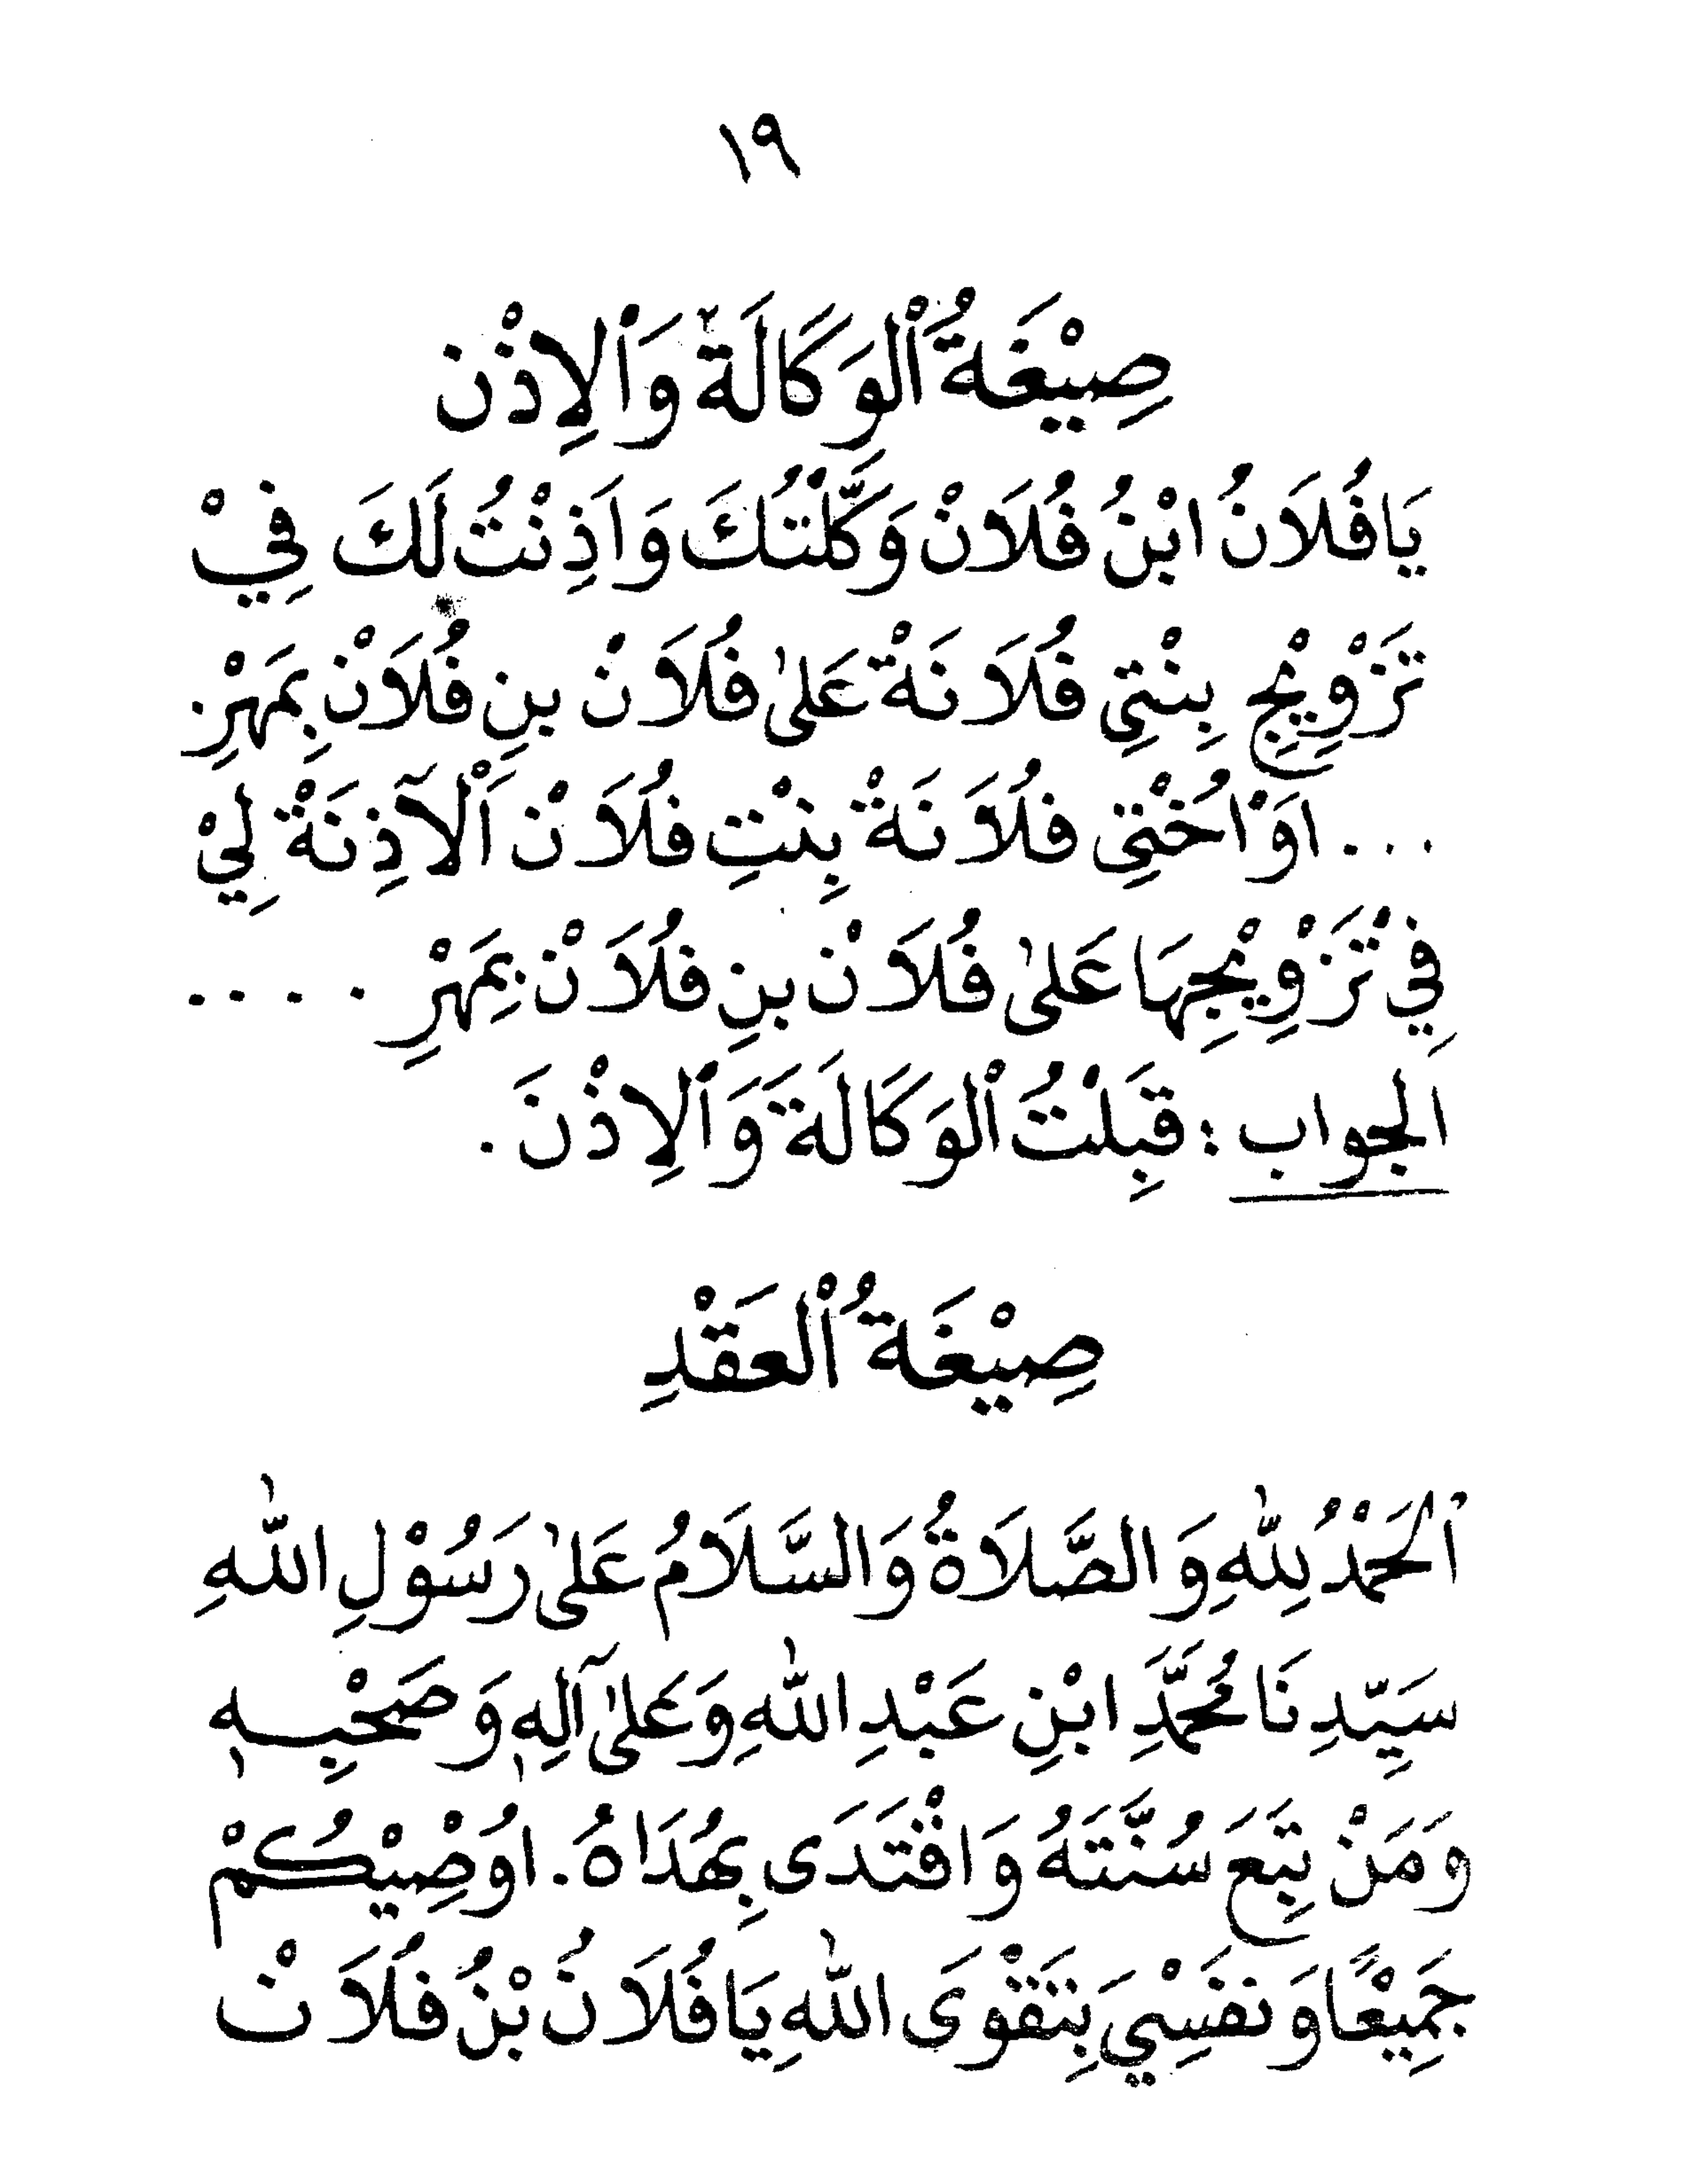 ١٩
صِيْغَةُ ٱلْوَكَالَةِ وَٱلْاِذْن
يَا فُلَانُ ابْنُ فُلَانْ وَكَّلْتُكَ وَاَذِنْتُ لَكَ فِيْ
تَزْوِيْجِ بِنْتِي فُلَانَةْ عَلىٰ فُلَانْ بنِ فُلَانْ بِمَهْرِ.
... اَوْ اُخْتِي فُلَانَةْ بِنْتِ فُلَانْ اَلْآذِنَةْ لِيْ
فِيْ تَزْوِيْجِهَا عَلىٰ فُلَانْ بنِ فُلَانْ بِمَهْرِ ....
الجواب : قَبِلْتُ ٱلْوَكَالَةَ وَٱلْاِذْنَ.
صِيْغَةُ ٱلْعَقْدِ
ٱلْحَمْدُ لِلّٰهِ وَالصَّلَاةُ وَالسَّلَامُ عَلىٰ رَسُوْلِ اللّٰهِ
سَيِّدِنَا مُحَمَّدَِ ابْنِ عَبْدِ اللّٰهِ وَعَلىٰ آلِهٖ وَصَحْبِهٖ
وَمَنْ تَبِعَ سُنَّتَهُ وَاقْتَدَى بِهُدَاهُ. اُوْصِيْكُمْ
جَمِيْعًا وَنَفْسِيَ بِتَقْوَى اللّٰهِ يَا فُلَانُ بْنُ فُلَانْ